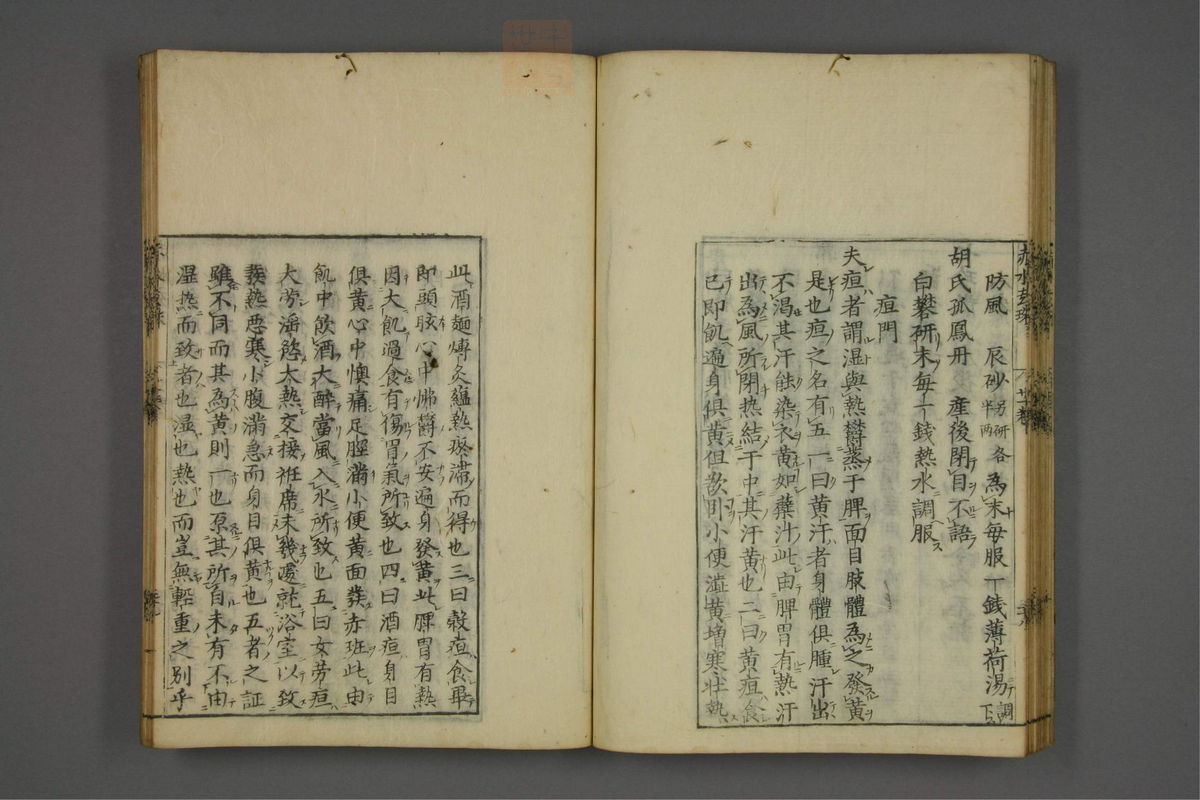 赤水玄珠 廿卷
防風 辰砂 另研半两 各為末每服一錢薄荷湯調下
胡氏孤鳳丹 產後閉目不語
白礬研末每一錢熱水調服
疸門
夫疸者謂湿與熱欝蒸于脾面目肢體為之發黄
是也疸之名有五一曰黄汗者身體俱腫汗出
不渴其汗能染衣黄如蘗汁此由脾胃有熱汗
出為風所閉热結于中其汗黄也二曰黄疸食
已即飢遍身俱黄但欲卧小便澁黄増寒壮熱
此酒麺煿灸蘊熱瘀滞而得也三曰穀疸食畢
即頭眩心中怫欝不安遍身發黄此脾胃有熱
因大飢過食有傷胃氣所致也四曰酒疸身目
俱黄心中懊痛足脛滿小便黄面發赤班此由
飢中飲酒大醉當風入水所致也五曰女劳疸
大劳滛慾大熱交接衽席未幾遽就浴室以致
發熱悪寒小腹滿急而身目俱黄也五者之証
雖不同而其為黄則一也原其所自未有不由
湿熱而致者也湿也熱也而豈無輕重之別乎